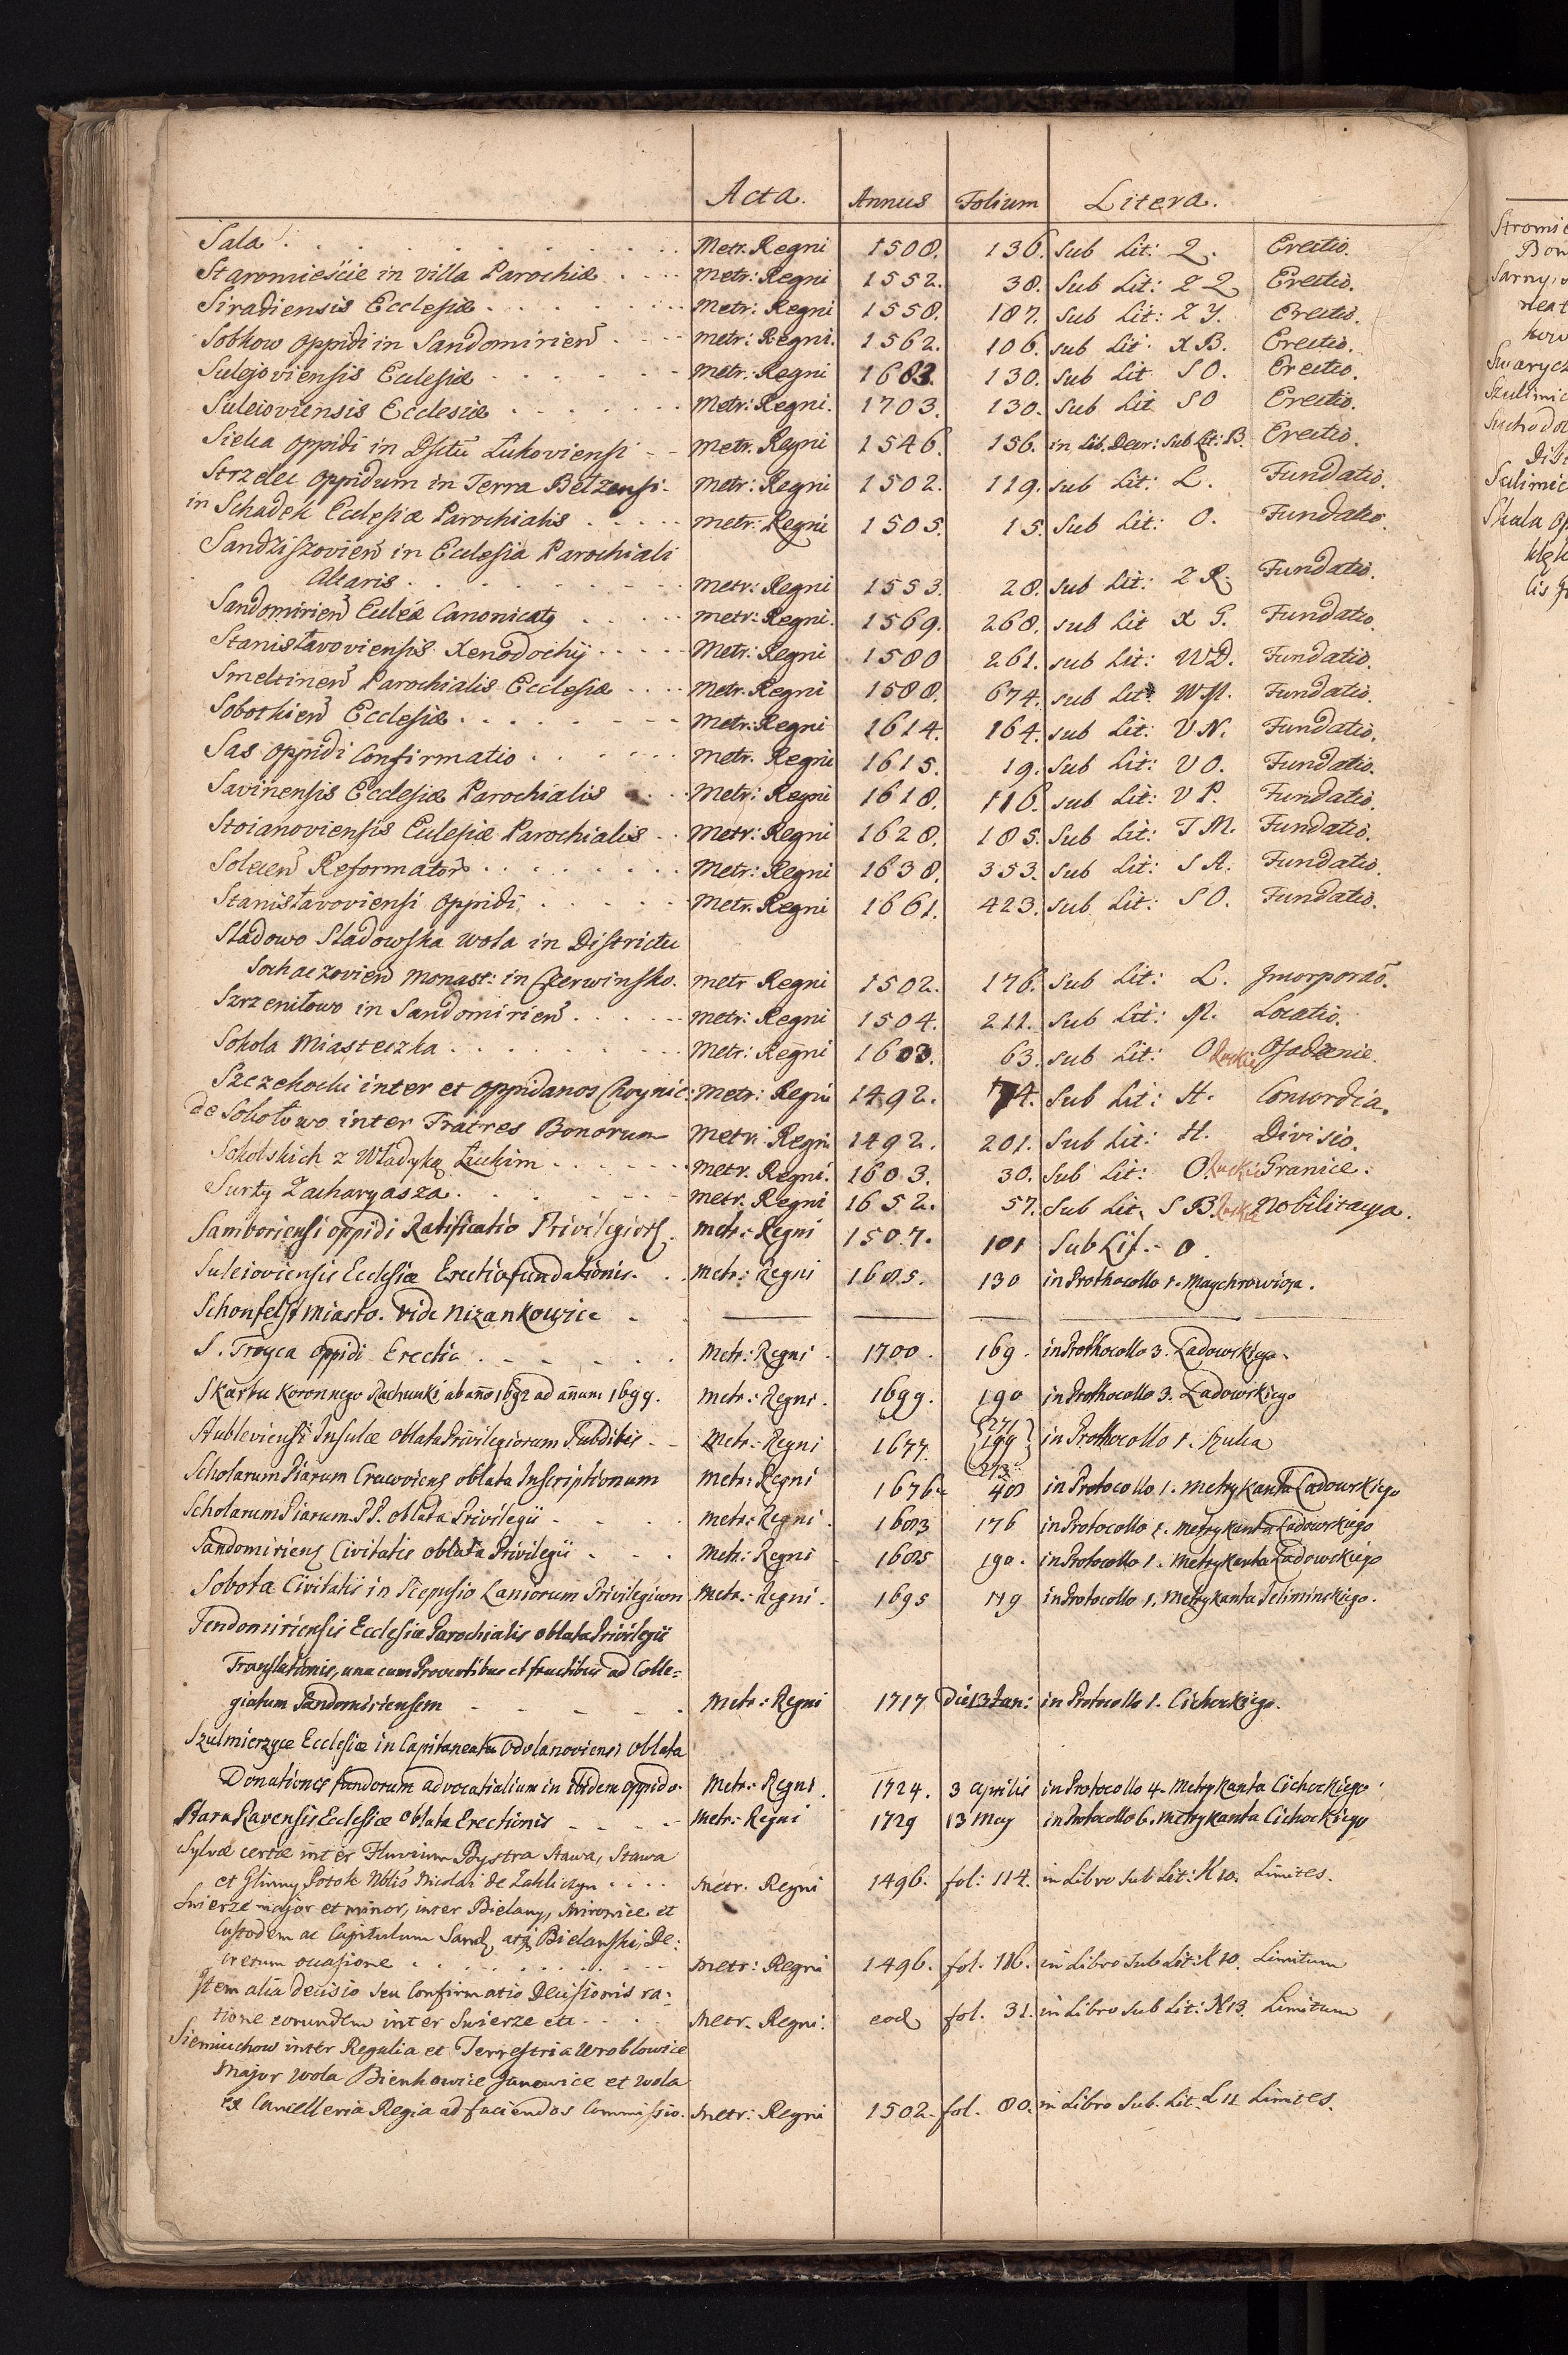 Acta. Annus Folium Litera.
Sala . . . Metr. Regni 1508. 136. Sub Lit: Q. Erectio.
Staromieście in villa Parochiæ . . . Metr: Regni 1552. 38. Sub Lit: Z Q Erectio.
Siradiensis Ecclesiæ . . . Metr: Regni 1558. 187. Sub Lit: Z Y. Erectio.
Sobkow Oppidi in Sandomirien̄ . . . Metr: Regni. 1562. 106. Sub Lit: X B. Erectio.
Sulejoviensis Eclesiæ . . . Metr: Regni 1683. 130. Sub Lit S O. Erectio.
Suleioviensis Ecclesiæ . . . Metr: Regni. 1703. 130. Sub Lit S O Erectio.
Sielca Oppidi in Dsttū Lukoviensi - - Metr. Regni 1546. 156. in Lib. Decr: Sub Lit: B. Erectio.
Strzelec Oppidum in Terra Betzensi - Metr: Regni 1502. 119. Sub Lit: L. Fundatio.
in Schadek Eclesiæ Parochialis . . . Metr: Regni 1505. 15. Sub Lit: O. Fundatio.
Sandziszovien̄ in Eclesia Parochiali
Altaris . . . Metr: Regni 1553. 28. Sub Lit: Z R. Fundatio.
Sandomirien̄ Eccleæ Canonicatq . . . Metr: Regni. 1569. 268. Sub Lit X G. Fundatio.
Stanisławoviensis Xenodochij . . . Metr: Regni 1580 261. Sub Lit: W D. Fundatio.
Smeltinen̄ Parochialis Ecclesiæ . . . Metr. Regni 1588. 674. Sub Lit: W M. Fundatio.
Sobothien̄ Ecclesiæ . . . Metr: Regni 1614. 164. Sub Lit: V N. Fundatio.
Sas Oppidi Confirmatio . . . Metr. Regni 1615. 19. Sub Lit: V O. Fundatio.
Savinensis Ecclesiæ Parochialis . . . Metr: Regni 1618. 116. Sub Lit: V P. Fundatio.
Stoianoviensis Eclesiæ Parochialis . . Metr: Regni 1628. 185. Sub Lit: T M. Fundatio.
Solecen̄ Reformator̄ . . . Metr: Regni 1638. 353. Sub Lit: S A. Fundatio.
Stanisławoviensi Oppidi . . . Metr. Regni 1661. 423. Sub Lit: S O. Fundatio.
Sladowo Sladowska Wola in Districtu
Sochaczovien̄ Monast: in Czerwinsko. Metr Regni 1502. 176. Sub Lit: L. Incorporaō.
Szrzenitowo in Sandomirien̄ . . . Metr: Regni 1504. 211. Sub Lit: N. Locatio.
Sokola Miasteczka . . . Metr: Regni 1603. 63. Sub Lit: O Ruskie Osadzenie.
Szczekocki inter et Oppidanos Choynic: Metr: Regni 1492. 74. Sub Lit: H. Concordia.
de Sokołowo inter Fratres Bonorum Metr: Regni 1492. 201. Sub Lit: H. Divisio.
Sokolskich z Władyką Łuckim . . . Metr. Regni. 1603. 30. Sub Lit: O. Ruskie Granice.
Surty Zacharyasza . . . Metr. Regni 1652. 57. Sub Lit. S B. Ruskie Nobilitacya.
Samboriensi oppidi Ratificatio Privilegior . Metr: Regni 1507. 101 Sub Lit. O.
Suleioviensis Ecclesiæ Erectio fundationis . . Metr: Regni 1685. 130 in Prothocollo 1. Maychrowicza.
Schonfelst miasto. vide Nizankowice
S. Troyca oppidi Erectio . . . Metr: Regni . 1700. 169. in Prothocollo 3. Ladowskiego.
Skarbu Koronnego Rachunki ab año 1692 ad añum 1699. Metr: Regni . 1699. 190 in Prothocollo 3. Ladowskiego
Stubleviensi Insulæ oblata Privilegiorum Subditis - - Metr: Regni 1677. 271 199 in Prothocollo 1. Szulca
273
Scholarum Piarum Cracoviens oblata Inscriptionum Metr: Regni 1676. 408 in Protocollo 1. Metrykanta Ladowskiego
Scholarum Piarum PP. oblata Privilegii - . . Metr: Regni . 1683 176 in Protocollo 1. Metrykanta Ladowskiego
Sandomiriens Civitatis oblata Privilegii . . . Metr: Regni 1685 190. in Protocollo 1. Metrykanta Ladowskiego
Sobota Civitatis in Scepusio Laniorum Privilegium Metr: Regni . 1695 119 in Protocollo 1. Metrykanta Jelimińskiego.
Sendomiriensis Ecclesiæ Parochialis oblata Privilegii
Translationis, una cum Proventibus et fructibus ad Colle=
giatum Sandomiriensem - - - . Metr: Regni 1717 Die 13 Jan: in Protocollo 1. Cichockiego.
Szulmierzyce Ecclesiæ in Capitaneatu Odolanoviensi oblata
Donationis fundorum advocatialium in ibidem oppido. Metr: Regni. 1724. 3 Aprilis in Protocollo 4. Metrykanta Cichockiego.
Stara Ravensis Ecclesiæ oblata Erectionis - - - Metr: Regni 1729 13 May in Protocollo 6. Metrykanta Cichockiego
Sylvæ certæ inter Fluvium Bystra Stawa, Stawa
et Glininy Potok Nblis Nicolai de Zakliczyn . . . Metr. Regni 1496. fol: 114. in Libro Sub Lit: K 10. Limites.
Swierze major et minor, inter Bielany, Mirowice et
Custodem ac Capitulum Sand atq Bielanski, De:
cretum ocasione . . . Metr: Regni 1496. fol. 116. in Libro Sub Lit: K 10. Limitum
Item alia decisio seu Confirmatio Decisionis ra:
tione eorundem inter Swierze etc . . . Metr. Regni. eod fol. 31. in Libro Sub Lit: N 13. Limitum
Siemiechow inter Regalia et Terrestria Wroblowice
Major Wola Bienkowice Janowice et Wola
ex Cancelleria Regia ad faciendos Commissio. Metr: Regni 1502. fol. 80. in Libro Sub. Lit. L 11 Limites.